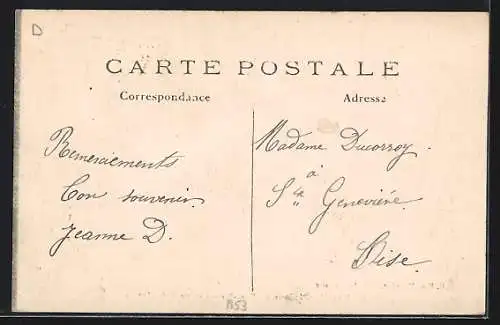 D
CARTE POSTALE
Correspondance
Adresse
Remerciements
Bon souvenir
Jeanne D.
Madame Ducorroy.
à
Ste Geneviève.
Oise.